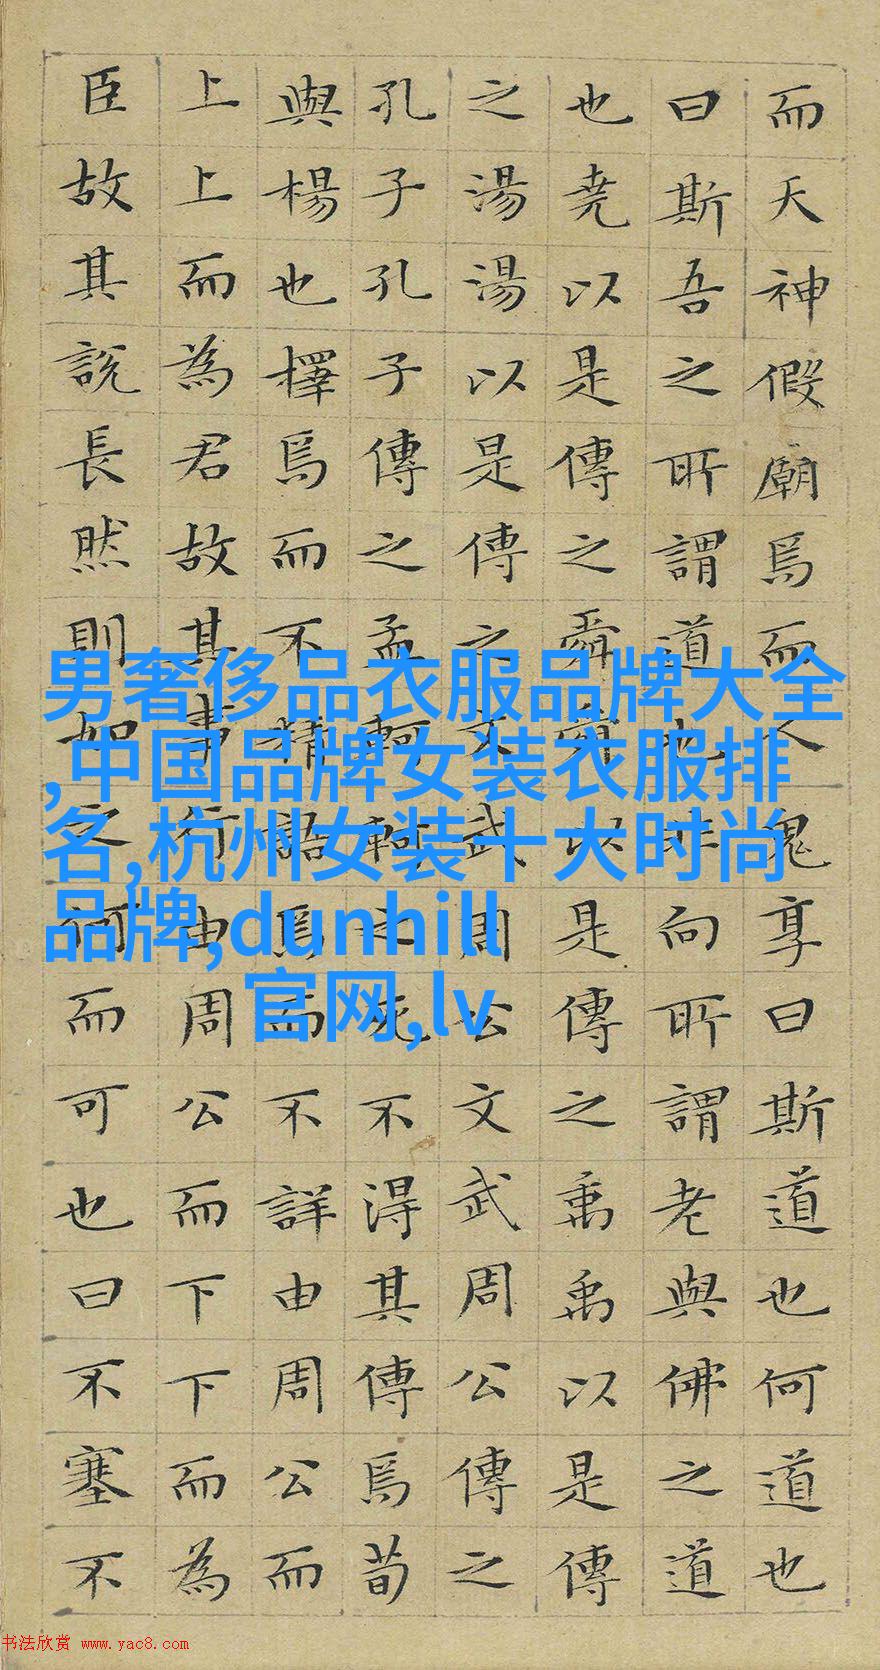 而天神假廟焉而人鬼享曰斯道也何道也
曰斯吾之所謂道也非向所謂老與佛之道
也堯以是傳之舜舜以是傳之禹禹以是傳
之湯湯以是傳之文武周公文武周公傳之
孔子孔子傳之孟軻軻之死不得其傳焉荀
與楊也擇焉而不精語焉而不詳由周公而
上上而為君故其事行由周公而下下而為
臣故其說長然則如之何而可也曰不塞不
男奢侈品衣服品牌大全
,中国品牌女装衣服排
名,杭州女装十大时尚
品牌,dunhill
官网,lv
书法欣赏 www.yac8.com